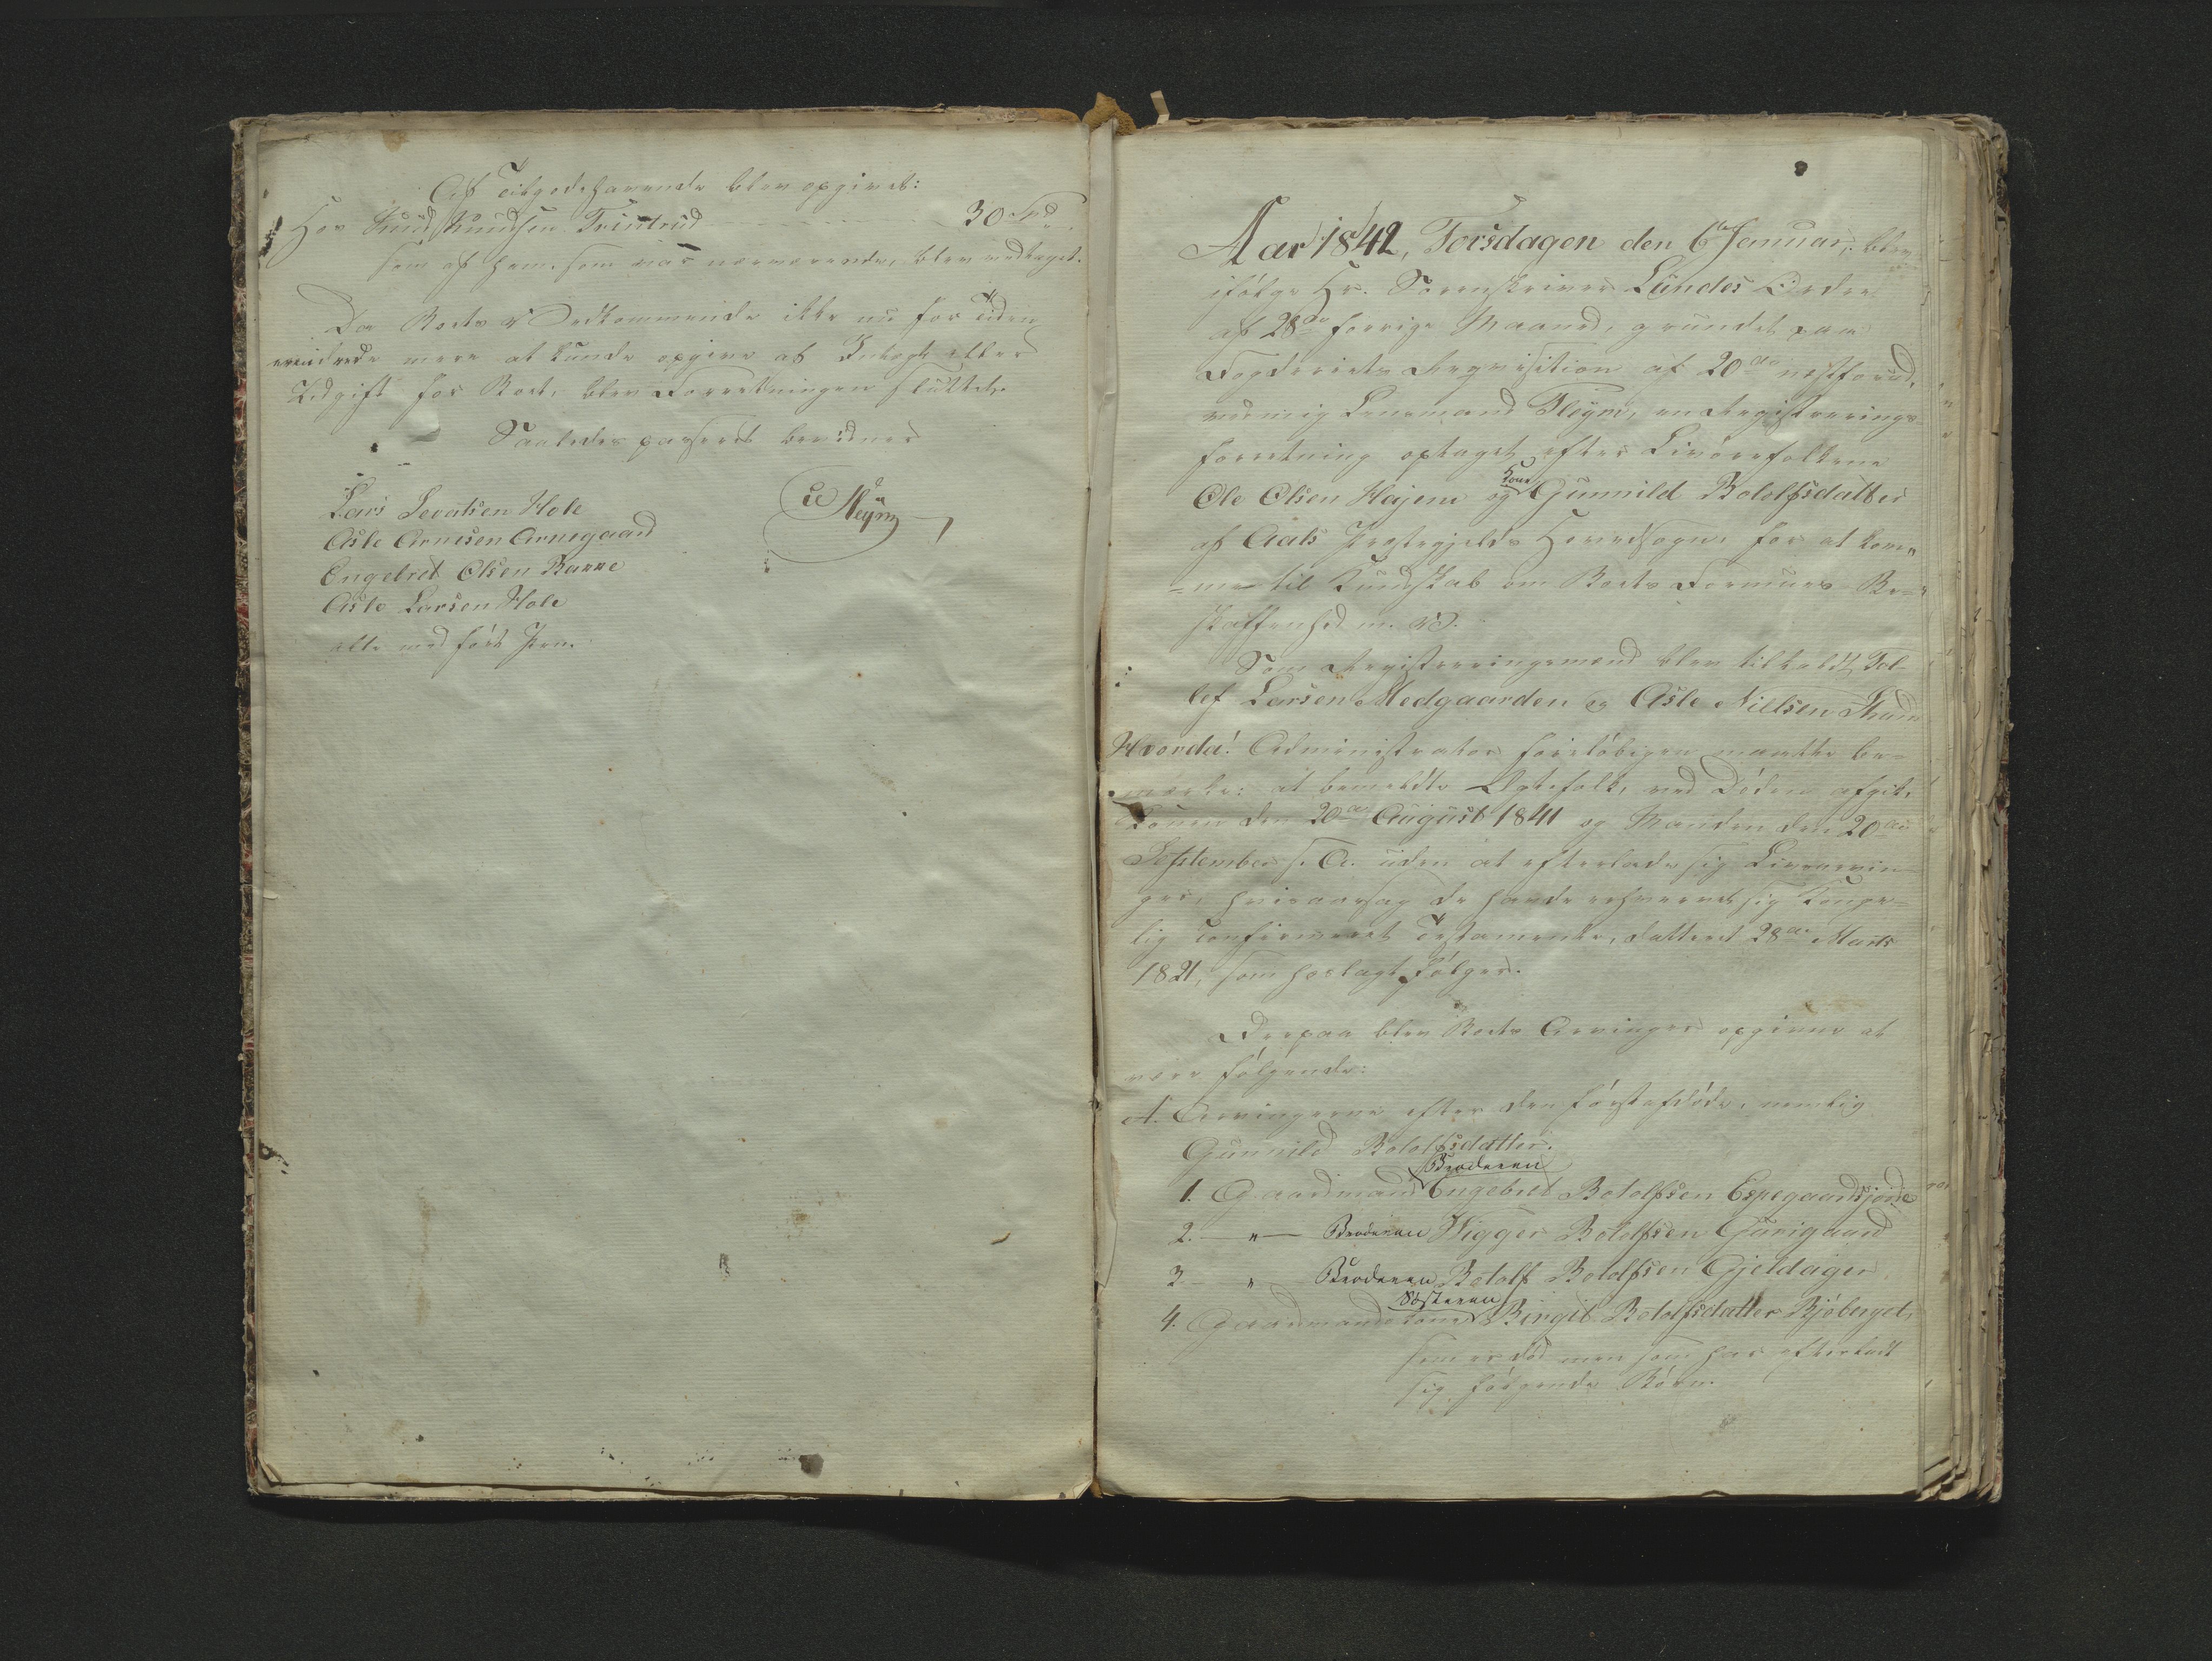 Af Tilgodehavende blev opgivet:
Hos Knud Knudsen Trintrud 30 Spd
som af ham, som var nærværende, blev vedtaget.
Da Boets Vedkommende ikke nu for Tiden
erindrede mere at kunde opgive af Indtægt eller
Udgift for Boet, blev Forretningen sluttet.
Saaledes passeret bevidner
Lars Sevatsen Hole
Asle Arnesen Arnegaard
Engebret Olsen Barre
Asle Larsen Hole
alle med ført Pen.
Fleym
Aar 1842, Torsdagen den 6te Januar, blev
ifølge Hr. Sorenskriver Lundes Ordre
af 28de forrige Maaned, grundet paa
Fogderiets Reqvisition af 20de næstforud,
ved mig Lensmand Fleym, en Registrerings
forretning optaget efter Livørefolkene
Ole Olsen Hajem og Kone Gunnild Botolfsdatter
af Aals Præstegjelds Hovedsogn, for at kom„
me til Kundskab om Boets Formues Be=
skaffenhed m. V.
Som Registreringsmænd blev tilkaldt Tol-
lef Larsen Medgaarden og Asle Nielsen
Hvorda! Administrator foreløbigen maatte be=
mærke: at bemeldte Ægtefolk, ved Døden afgik,
Konen den 20de August 1841 og Manden den 20de
September s. A. uden at efterlade sig Livsarvin
ger, hvisaarsag de havde erhvervet sig Konge=
lig confirmeret Testamente, datteret 28de Marts
1821, som hoslagt følger.
Derpaa blev Boets Arvinger opgivne at
være følgende:
A. Arvingerne efter den førstafdøde, nemlig
Gunnild Botolfsdatter.
1. Gaardmand Broderen Engebret Botolfsen Espegaardsjorde
2. — „ — Broderen Vigger Botolfsen Gurigaard
3. — „ — Broderen Botolf Botolfsen Gjeldager
4. Gaardmandskone Søsteren Birgit Botolfsdatter Bjøberget,
som er død men som har efterladt
sig følgende Børn.